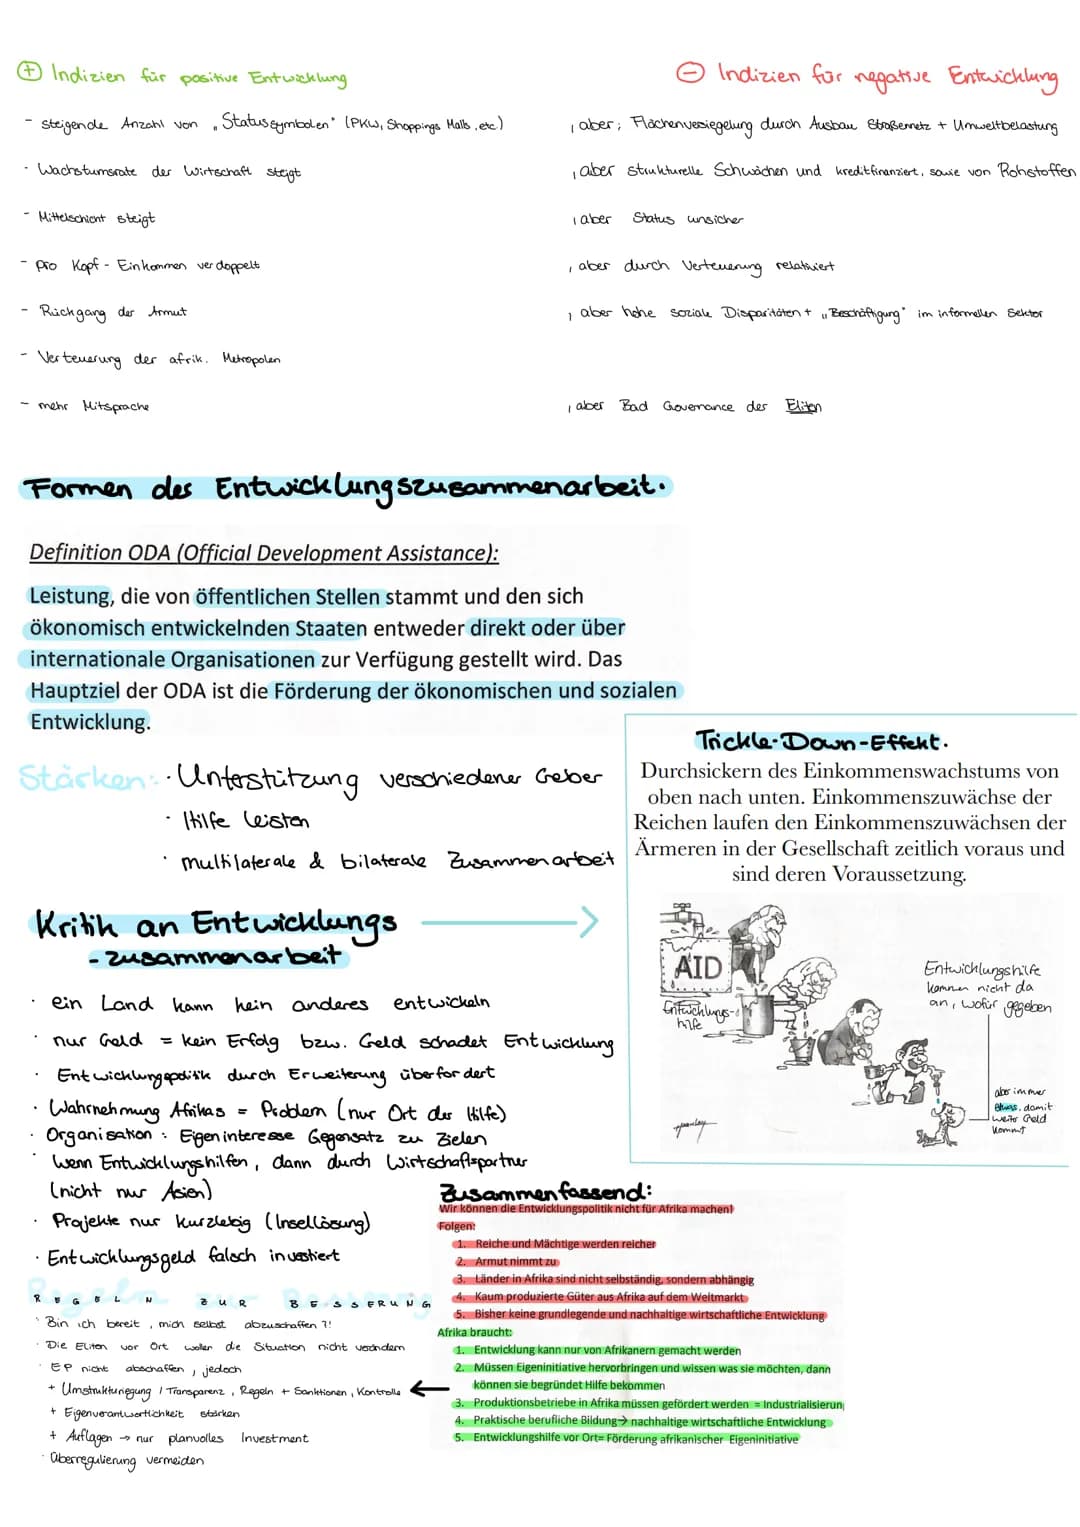 ⊕ Indizien für positive Entwicklung
- steigende Anzahl von „Statussymbolen" (PKW, Shoppings Malls, etc)
- Wachstumsrate der Wirtschaft steigt
- Mittelschicht steigt
- pro Kopf - Einkommen verdoppelt
- Rückgang der Armut
- Verteuerung der afrik. Metropolen
- mehr Mitsprache
⊖ Indizien für negative Entwicklung
, aber: Flächenversiegelung durch Ausbau Straßennetz + Umweltbelastung
, aber strukturelle Schwächen und kreditfinanziert, sowie von Rohstoffen
, aber Status unsicher
, aber durch Verteuerung relativiert
, aber hohe soziale Disparitäten + „Beschäftigung" im informellen Sektor
, aber Bad Governance der Eliten
Formen des Entwicklungszusammenarbeit.
Definition ODA (Official Development Assistance):
Leistung, die von öffentlichen Stellen stammt und den sich
ökonomisch entwickelnden Staaten entweder direkt oder über
internationale Organisationen zur Verfügung gestellt wird. Das
Hauptziel der ODA ist die Förderung der ökonomischen und sozialen
Entwicklung.
Stärken: · Unterstützung verschiedener Geber
· Hilfe leisten
· multilaterale & bilaterale Zusammenarbeit
Trickle-Down-Effekt.
Durchsickern des Einkommenswachstums von
oben nach unten. Einkommenszuwächse der
Reichen laufen den Einkommenszuwächsen der
Ärmeren in der Gesellschaft zeitlich voraus und
sind deren Voraussetzung.
AID
Entwicklungs-
hilfe
Entwicklungshilfe
kommen nicht da
an, wofür gegeben
aber immer
etwas, damit
weiter Geld
kommt
Kritik an Entwicklungs
-zusammenarbeit
· ein Land kann kein anderes entwickeln
· nur Geld = kein Erfolg bzw. Geld schadet Entwicklung
· Entwicklungspolitik durch Erweiterung überfordert
· Wahrnehmung Afrikas = Problem (nur Ort der Hilfe)
· Organisation: Eigeninteresse Gegensatz zu Zielen
· wenn Entwicklungshilfen, dann durch Wirtschaftspartner
(nicht nur Asien)
· Projekte nur kurzlebig (Insellösung)
· Entwicklungsgeld falsch investiert
REGELN ZUR BESSERUNG
· Bin ich bereit, mich selbst abzuschaffen?!
· Die Eliten vor Ort wollen die Situation nicht verändern
· EP nicht abschaffen, jedoch
+ Umstrukturiegung / Transparenz, Regeln + Sanktionen, Kontrolle
+ Eigenverantwortlichkeit stärken
+ Auflagen → nur planvolles Investment
· Überregulierung vermeiden
Zusammenfassend:
Wir können die Entwicklungspolitik nicht für Afrika machen!
Folgen:
1. Reiche und Mächtige werden reicher
2. Armut nimmt zu
3. Länder in Afrika sind nicht selbständig, sondern abhängig
4. Kaum produzierte Güter aus Afrika auf dem Weltmarkt
5. Bisher keine grundlegende und nachhaltige wirtschaftliche Entwicklung
Afrika braucht:
1. Entwicklung kann nur von Afrikanern gemacht werden
2. Müssen Eigeninitiative hervorbringen und wissen was sie möchten, dann
können sie begründet Hilfe bekommen
3. Produktionsbetriebe in Afrika müssen gefördert werden = Industrialisierun
4. Praktische berufliche Bildung→ nachhaltige wirtschaftliche Entwicklung
5. Entwicklungshilfe vor Ort= Förderung afrikanischer Eigeninitiative